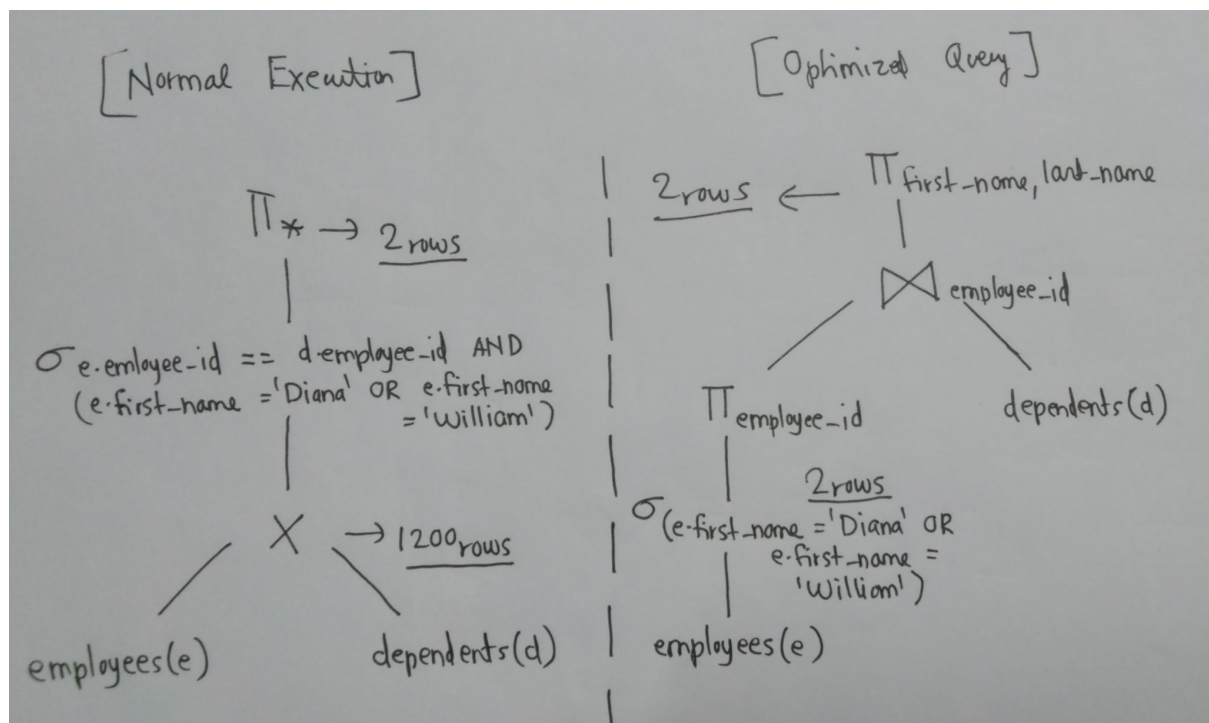 [Normal Execution]
Π* → 2 rows
σ e.emloyee_id == d.employee_id AND
(e.first_name = 'Diana' OR e.first_name
= 'William')
X → 1200 rows
employees(e)
dependents(d)
[Optimized Query]
2 rows ← Π first_name, last_name
⋈ employee_id
Π employee_id
dependents(d)
2 rows
σ (e.first_name = 'Diana' OR
e.first_name =
'William')
employees(e)